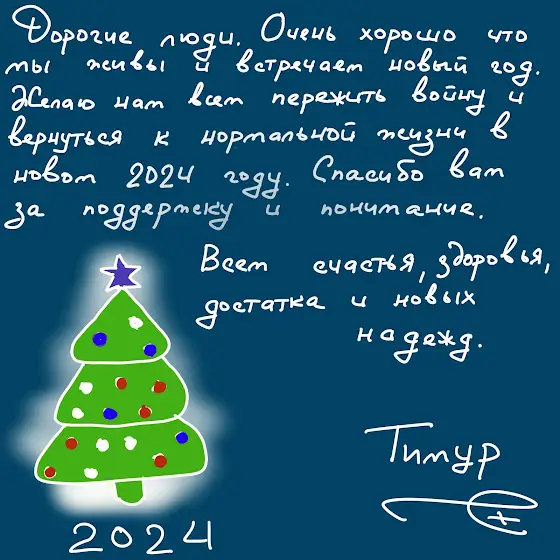 Дорогие люди. Очень хорошо что
мы живы и встречаем новый год.
Желаю нам всем пережить войну и
вернуться к нормальной жизни в
новом 2024 году. Спасибо вам
за поддержку и понимание.
Всем счастья, здоровья,
достатка и новых
надежд.
Тимур
2024